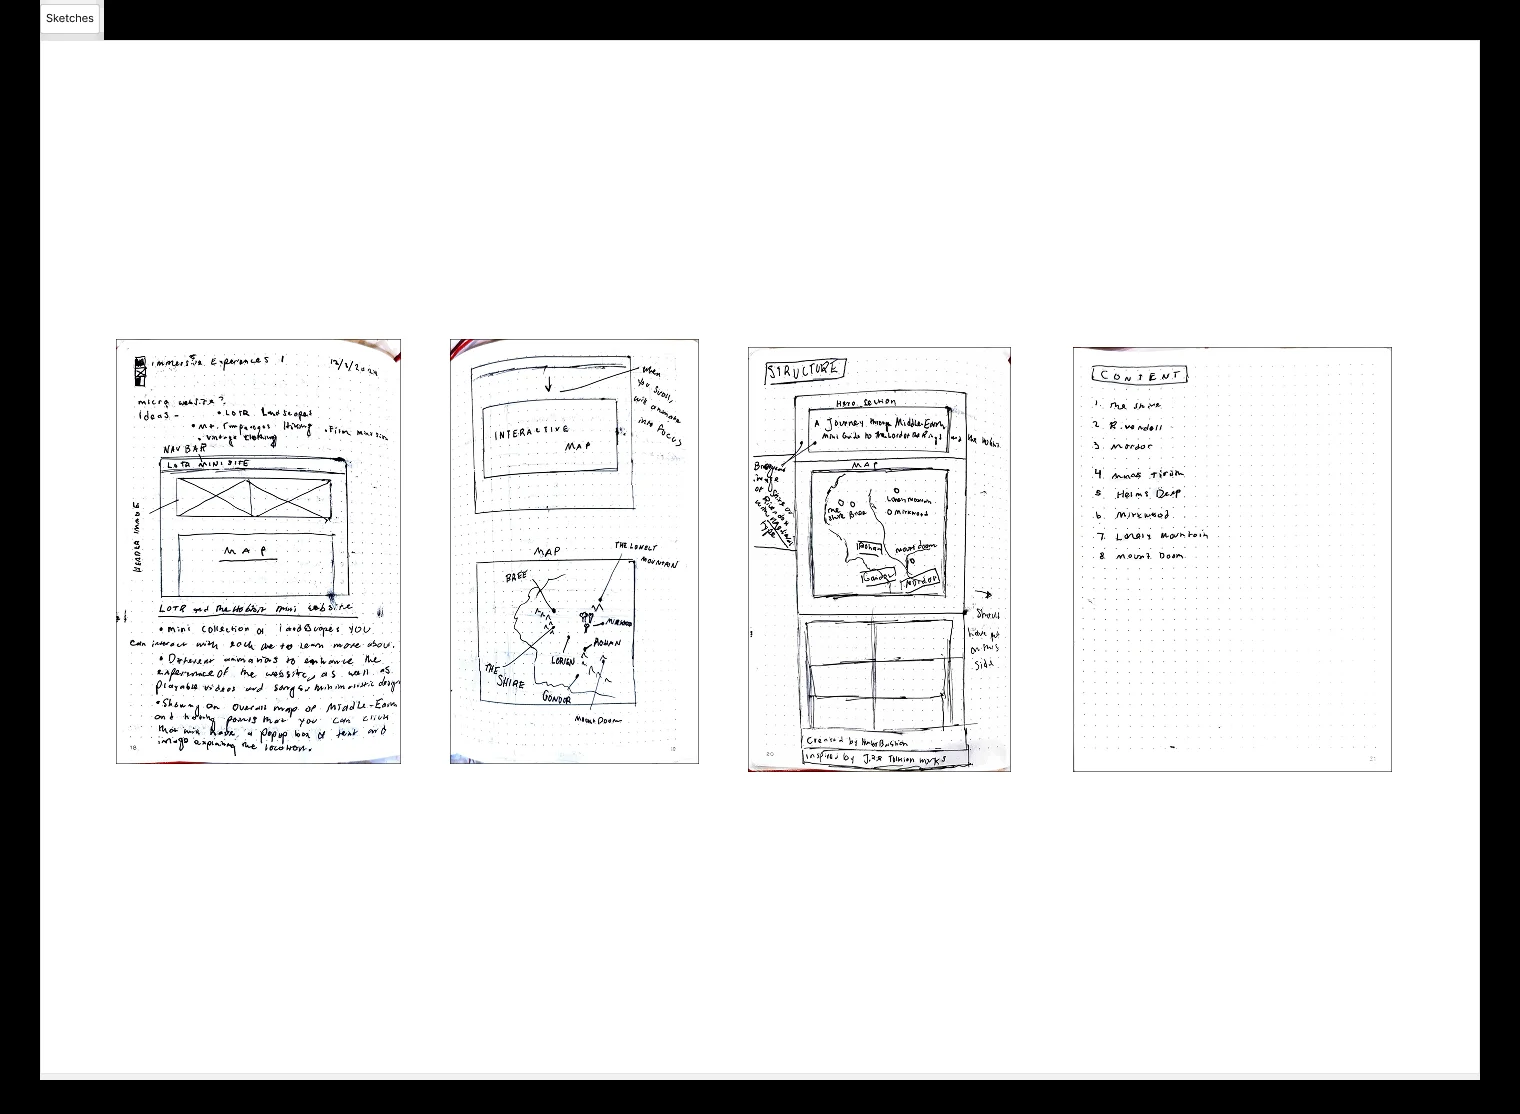 Sketches
Immersive Experiences 1
12/3/2024
micro website?
Ideas -
• LOTR Landscapes
• Mt. Timpanogos Hiking
• Film
• Vintage Clothing
NAV BAR
LOTR MINI SITE
HEADER IMAGE
MAP
LOTR and The Hobbit mini website
• mini collection of landscapes you
can interact with each one to learn more about.
• Different animations to enhance the
experience of the website, as well as
playable videos and songs, minimalistic design
• Showing an overall map of Middle-Earth
and having points that you can click
that will have a popup box of text and
image explaining the location.
18
When
you scroll,
will animate
into focus
INTERACTIVE
MAP
MAP
THE LONELY
MOUNTAIN
BREE
MIRKWOOD
ROHAN
LORIEN
THE
SHIRE
GONDOR
MOUNT DOOM
19
STRUCTURE
Hero Section
A Journey through Middle-Earth
Mini Guide to the Lord of the Rings and the Hobbit
Background
image
of
Shire or
Rivendell
with
Type
MAP
Lonely Mountain
The
Shire
Bree
Mirkwood
Rohan
Mount Doom
Gondor
Mordor
Should
have put
on this
side
Created by
Inspired by J.R.R Tolkien works
20
CONTENT
1. The Shire
2. Rivendell
3. Mordor
4. Minas Tirith
5. Helms Deep
6. Mirkwood
7. Lonely Mountain
8. Mount Doom
21